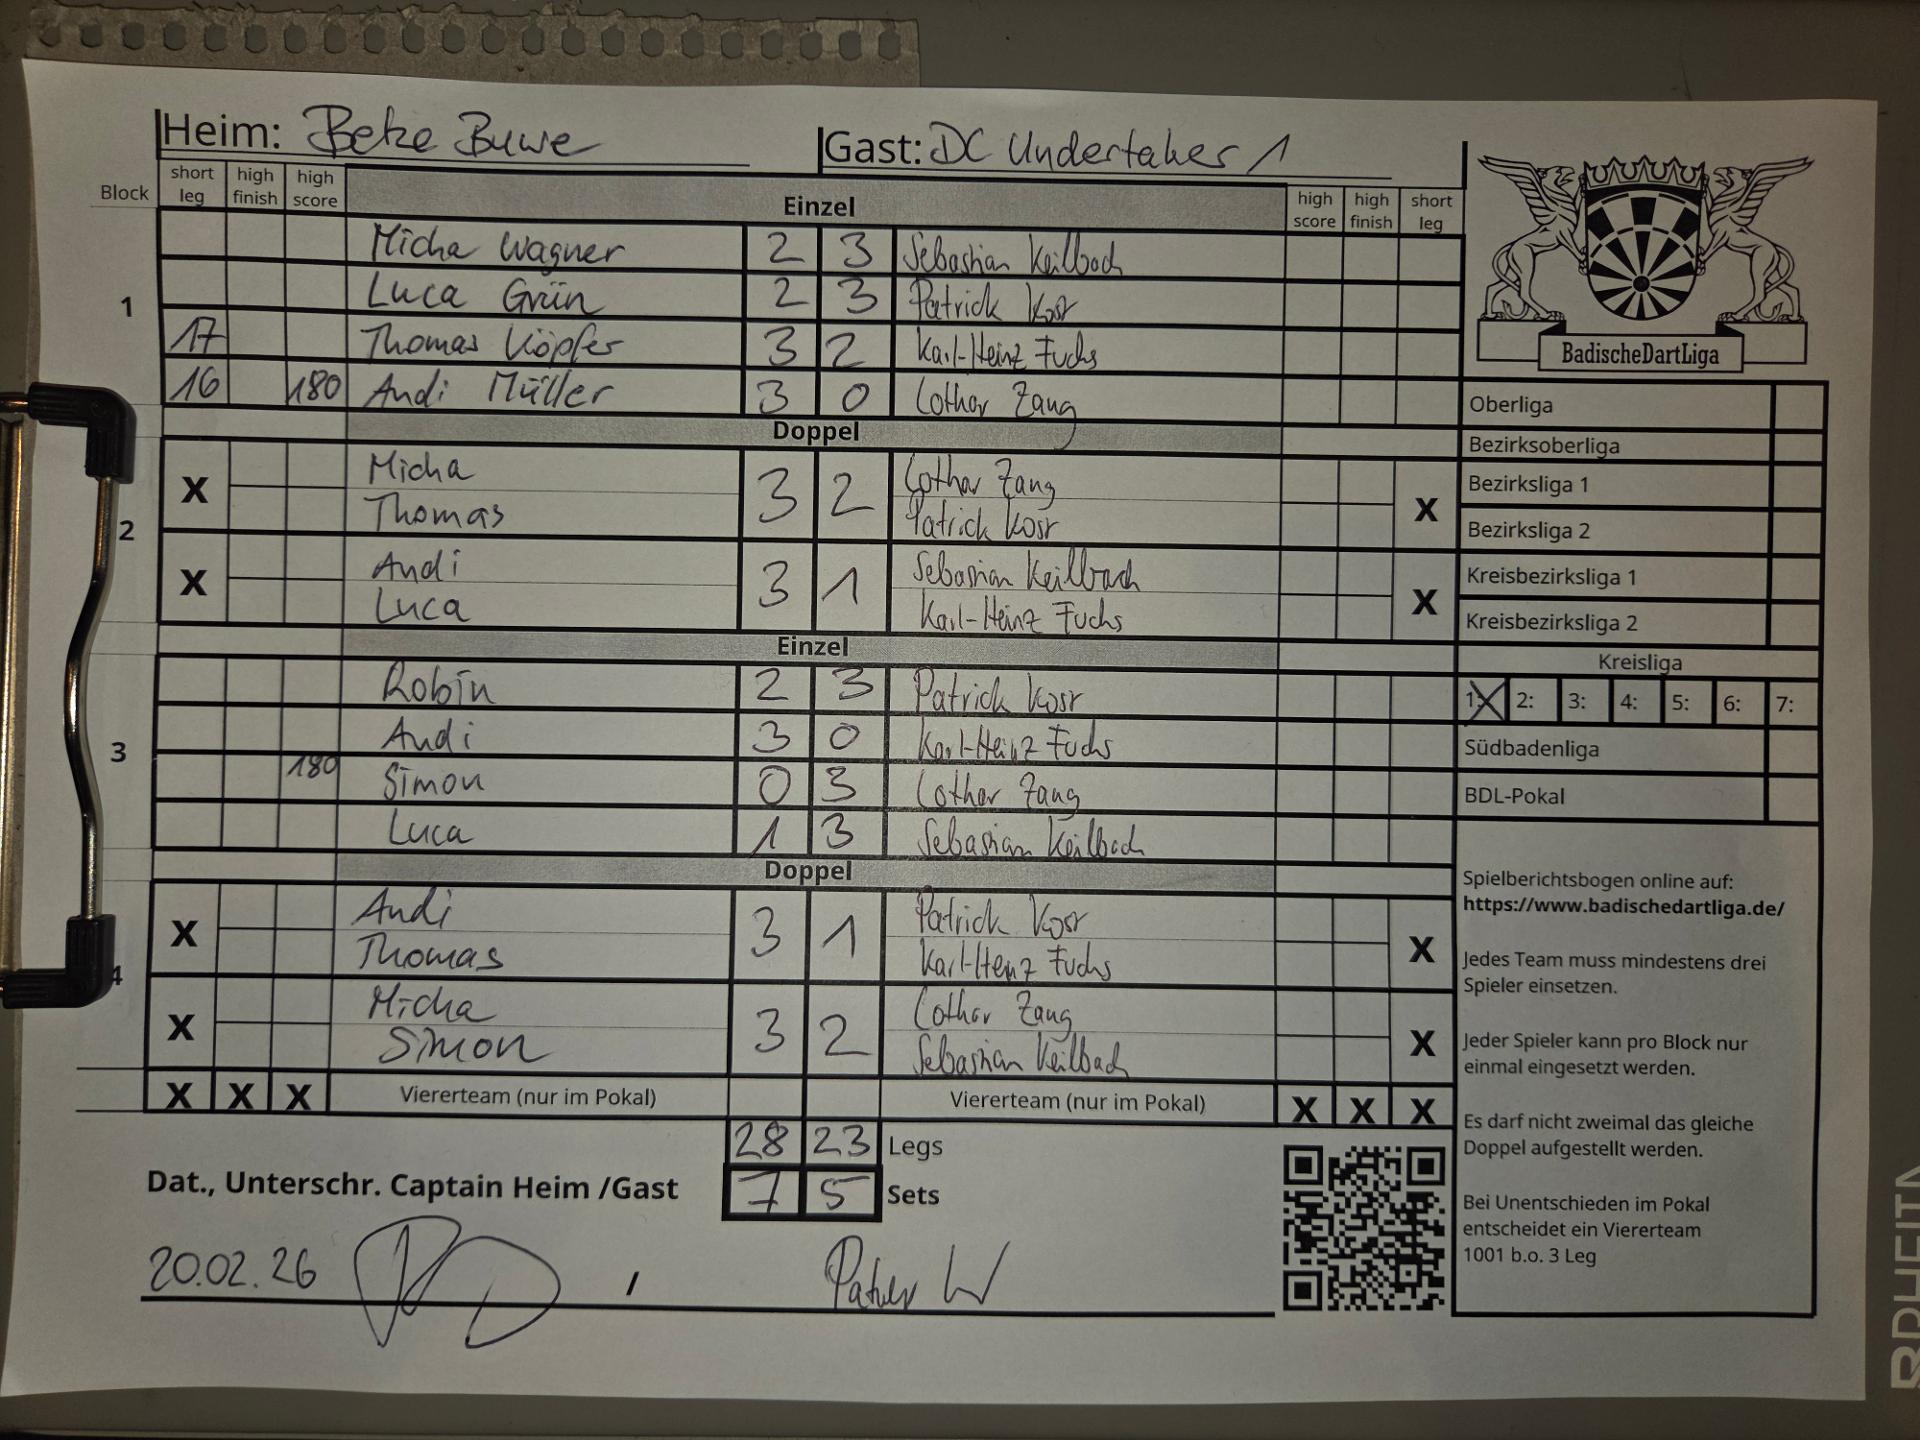 Heim: Beke Buwe Gast: DC Undertaker 1
Block short leg high finish high score Einzel high score high finish short leg
1
Micha Wagner 2 3 Sebastian Keilbach
Luca Grün 2 3 Patrick Kosr
17 Thomas Köpfer 3 2 Karl-Heinz Fuchs
16 180 Andi Müller 3 0 Lothar Zang
Doppel
2
X Micha 3 2 Lothar Zang X
Thomas Patrick Kosr
X Andi 3 1 Sebastian Keilbach X
Luca Karl-Heinz Fuchs
Einzel
3
Robin 2 3 Patrick Kosr
Andi 3 0 Karl-Heinz Fuchs
180 Simon 0 3 Lothar Zang
Luca 1 3 Sebastian Keilbach
Doppel
4
X Andi 3 1 Patrick Kosr X
Thomas Karl-Heinz Fuchs
X Micha 3 2 Lothar Zang X
Simon Sebastian Keilbach
X X X Viererteam (nur im Pokal) Viererteam (nur im Pokal) X X X
28 23 Legs
Dat., Unterschr. Captain Heim /Gast 7 5 Sets
20.02.26 /
BadischeDartLiga
Oberliga
Bezirksoberliga
Bezirksliga 1
Bezirksliga 2
Kreisbezirksliga 1
Kreisbezirksliga 2
Kreisliga
1: X 2: 3: 4: 5: 6: 7:
Südbadenliga
BDL-Pokal
Spielberichtsbogen online auf:
https://www.badischedartliga.de/
Jedes Team muss mindestens drei
Spieler einsetzen.
Jeder Spieler kann pro Block nur
einmal eingesetzt werden.
Es darf nicht zweimal das gleiche
Doppel aufgestellt werden.
Bei Unentschieden im Pokal
entscheidet ein Viererteam
1001 b.o. 3 Leg